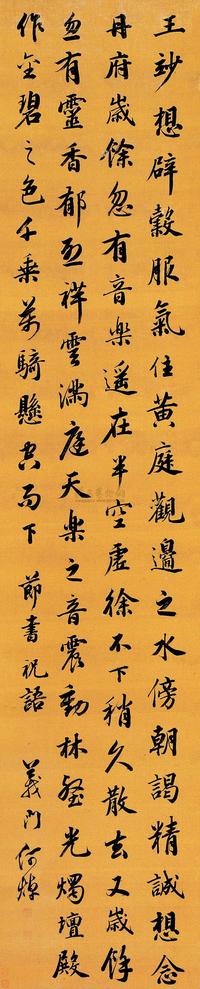 王妙想辟穀服氣住黃庭觀邊之水傍朝謁精誠想念
丹府歲餘忽有音樂遥在半空虛徐不下稍久散去又歲餘
忽有靈香郁烈祥雲滿庭天樂之音震動林壑光燭壇殿
作金碧之色千乘萬騎懸空而下 節書祝語 義門何焯